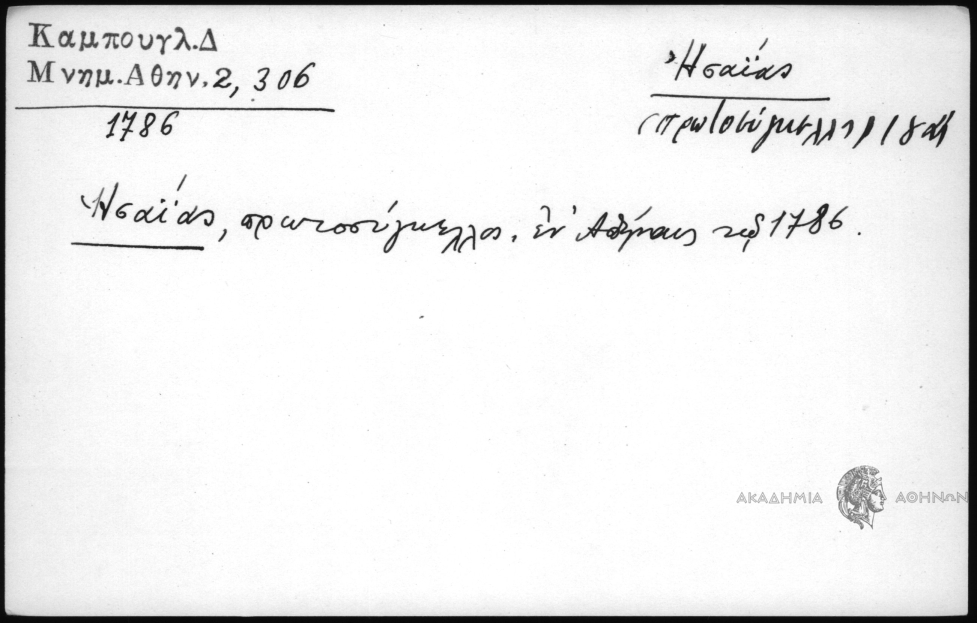 Καμπουγλ.Δ
Μνημ.Αθην.2, 306
1786
Ἠσαΐας
(πρωτοσύγκελλος)
Ἠσαΐας, πρωτοσύγκελλος. ἐν Ἀθήναις τῷ 1786.
ΑΚΑΔΗΜΙΑ ΑΘΗΝΩΝ